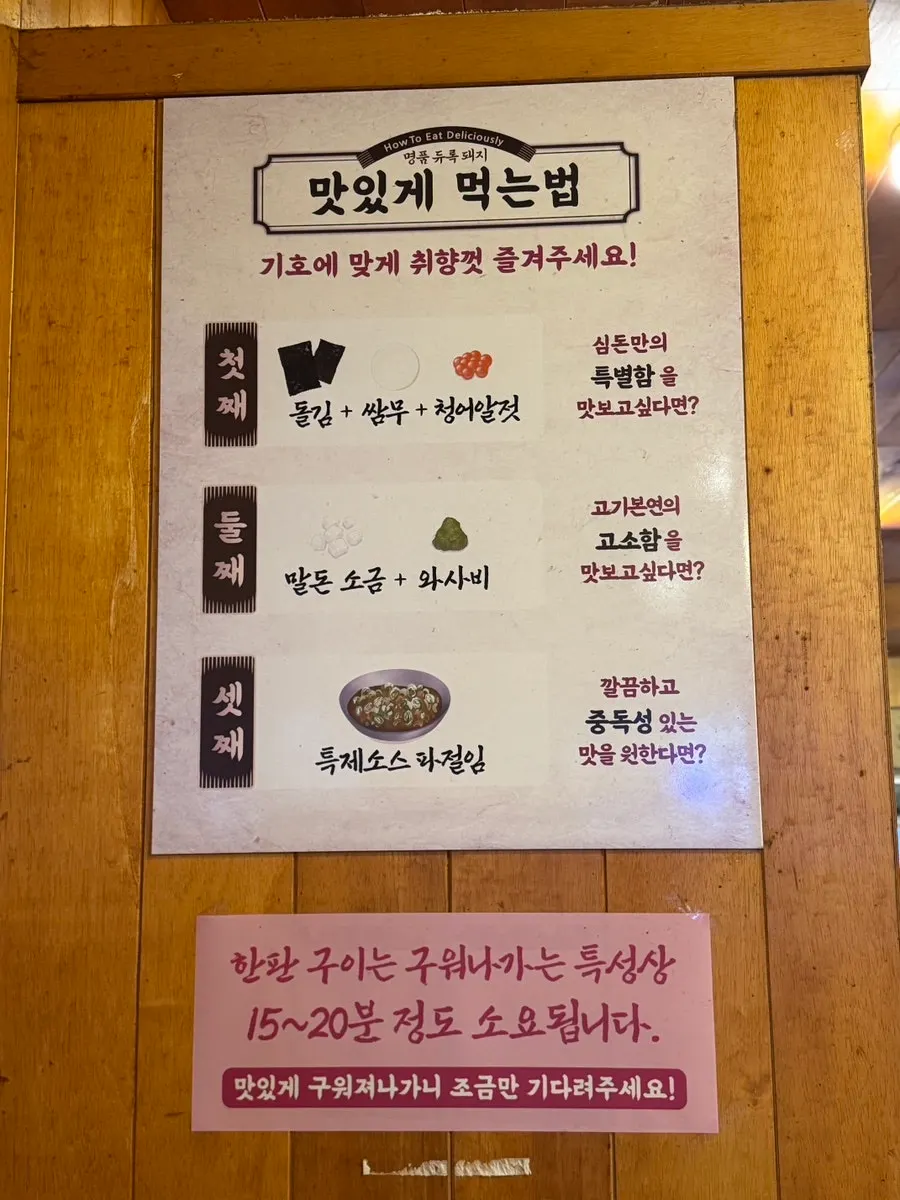 How To Eat Deliciously
명품 듀록 돼지
맛있게 먹는법
기호에 맞게 취향껏 즐겨주세요!
첫째
돌김 + 쌈무 + 청어알젓
심돈만의
특별함을
맛보고싶다면?
둘째
말돈 소금 + 와사비
고기본연의
고소함을
맛보고싶다면?
셋째
특제소스 파절임
깔끔하고
중독성 있는
맛을 원한다면?
한판 구이는 구워나가는 특성상
15~20분 정도 소요됩니다.
맛있게 구워져나가니 조금만 기다려주세요!